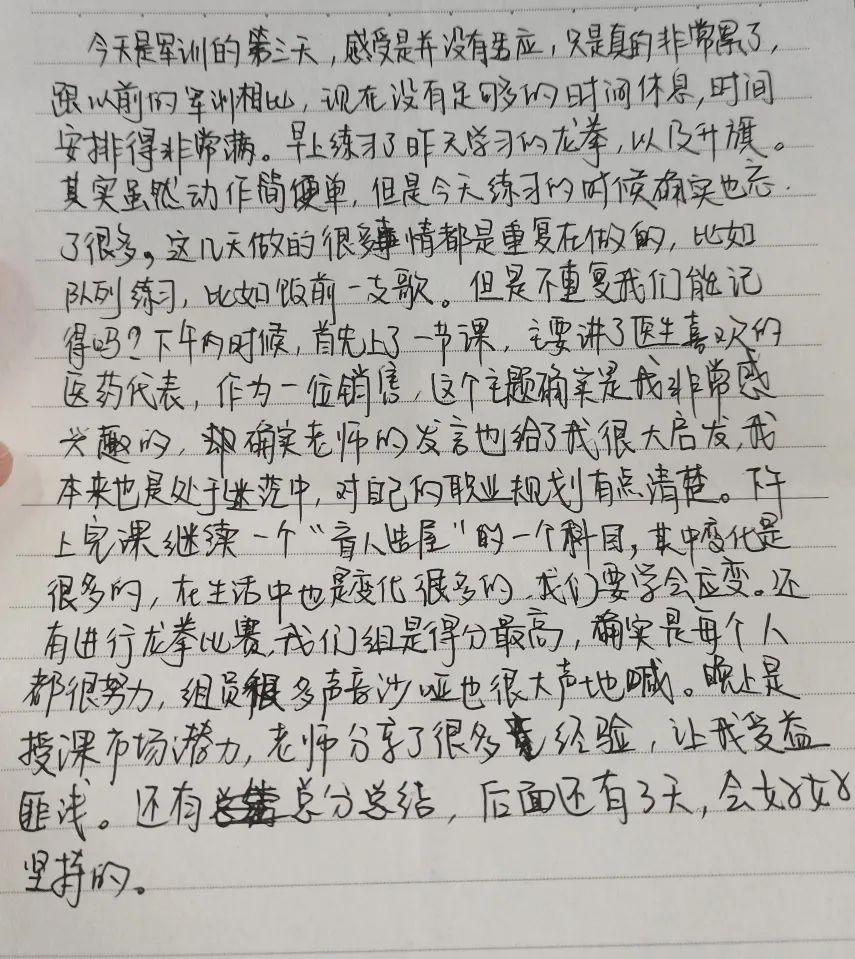 今天是军训的第三天，感受是并没有适应，只是真的非常累了，
跟以前的军训相比，现在没有足够多的时间休息，时间
安排得非常满。早上练习了昨天学习的龙拳，以及升旗。
其实虽然动作简便单，但是今天练习的时候确实也忘
了很多。这几天做的很多事情都是重复在做的，比如
队列练习，比如饭前一支歌。但是不重复我们能记
得吗？下午内时候，首先上了一节课，主要讲了医生喜欢的
医药代表，作为一位销售，这个主题确实是我非常感
兴趣的，却确实老师的发言也给了我很大启发，我
本来也是处于迷茫中，对自己的职业规划有点清楚。下午
上完课继续一个“盲人造屋”的一个科目，其中变化是
很多的，在生活中也是变化很多的，我们要学会应变。还
有进行龙拳比赛，我们组是得分最高，确实是每个人
都很努力，组员很多声音沙哑也很大声地喊。晚上是
授课市场潜力，老师分享了很多经验，让我受益
匪浅。还有总分总结，后面还有3天，会好好
坚持的。